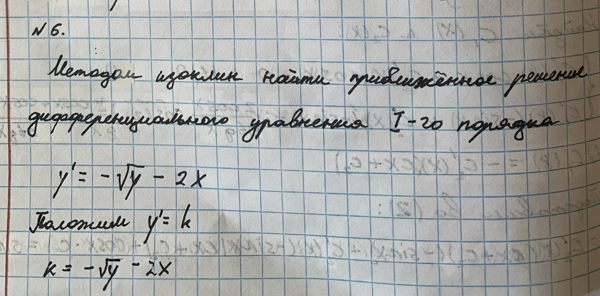 №6.
Методом изоклин найти приближённое решение
дифференциального уравнения I-го порядка
y' = -√y - 2x
Положим y' = k
k = -√y - 2x